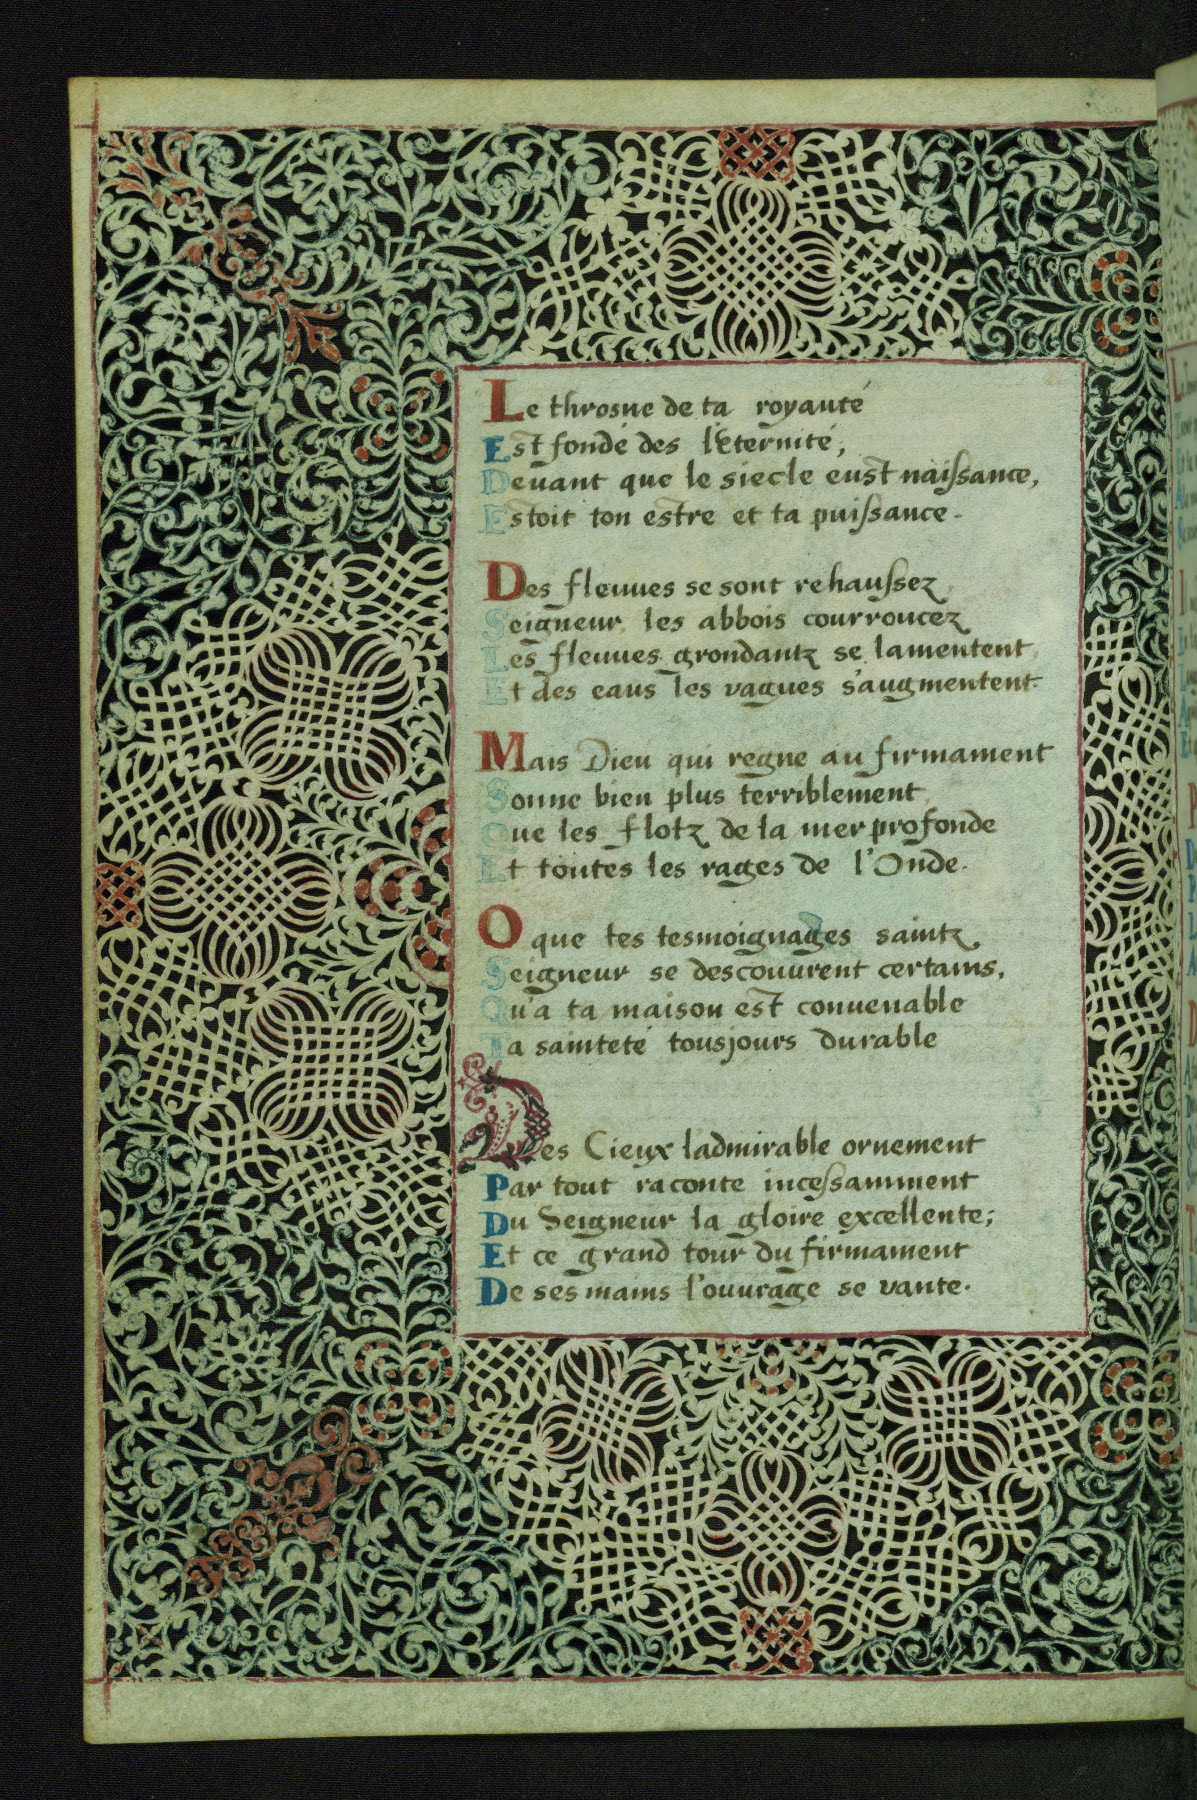 Le throsne de ta royauté
Est fondé des l'Eternité,
Deuant que le siecle eust naissance,
Estoit ton estre et ta puissance.
Des fleuues se sont rehaussez
Seigneur, les abbois courroucez
Les fleuues grondantz se lamentent,
Et des eaus les vagues s'augmentent.
Mais Dieu qui regne au firmament
Sonne bien plus terriblement
Que les flotz de la mer profonde
Et toutes les rages de l'Onde.
O que tes tesmoignages saintz,
Seigneur se descouurent certains,
Qu'a ta maison est conuenable
Ta sainteté tousjours durable
Des Cieux ladmirable ornement
Par tout raconte incessamment
Du Seigneur la gloire excellente;
Et ce grand tour du firmament
De ses mains l'ouurage se vante.